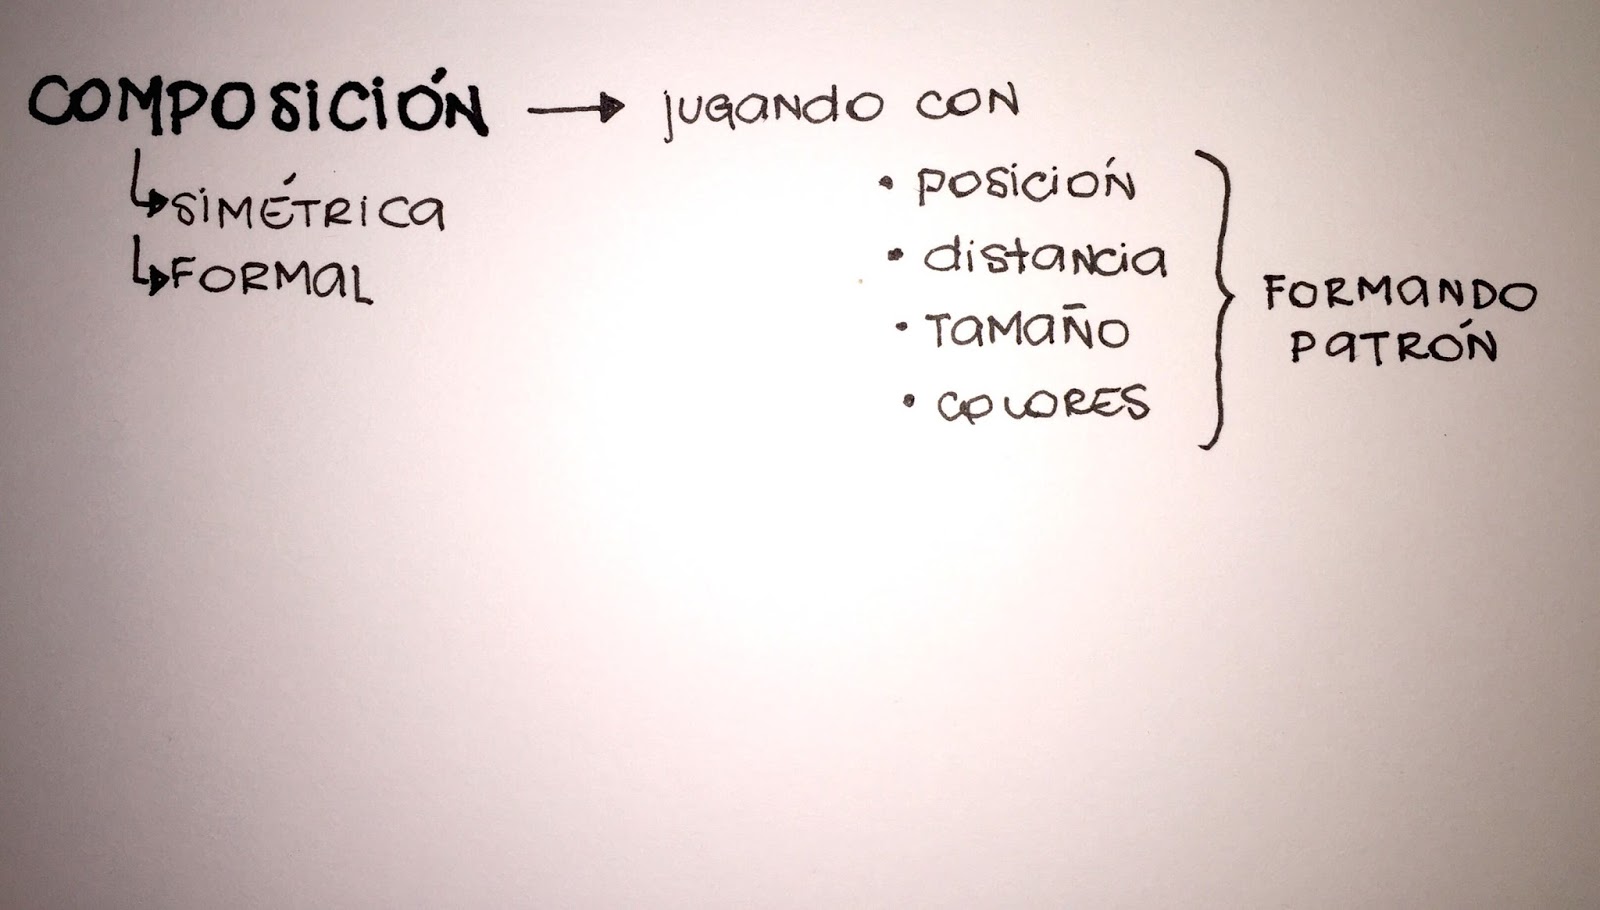 COMPOSICIÓN → jugando con
↳ SIMÉTRICA
↳ FORMAL
• POSICIÓN
• distancia
• TAMAÑO
• COLORES
FORMANDO
PATRÓN